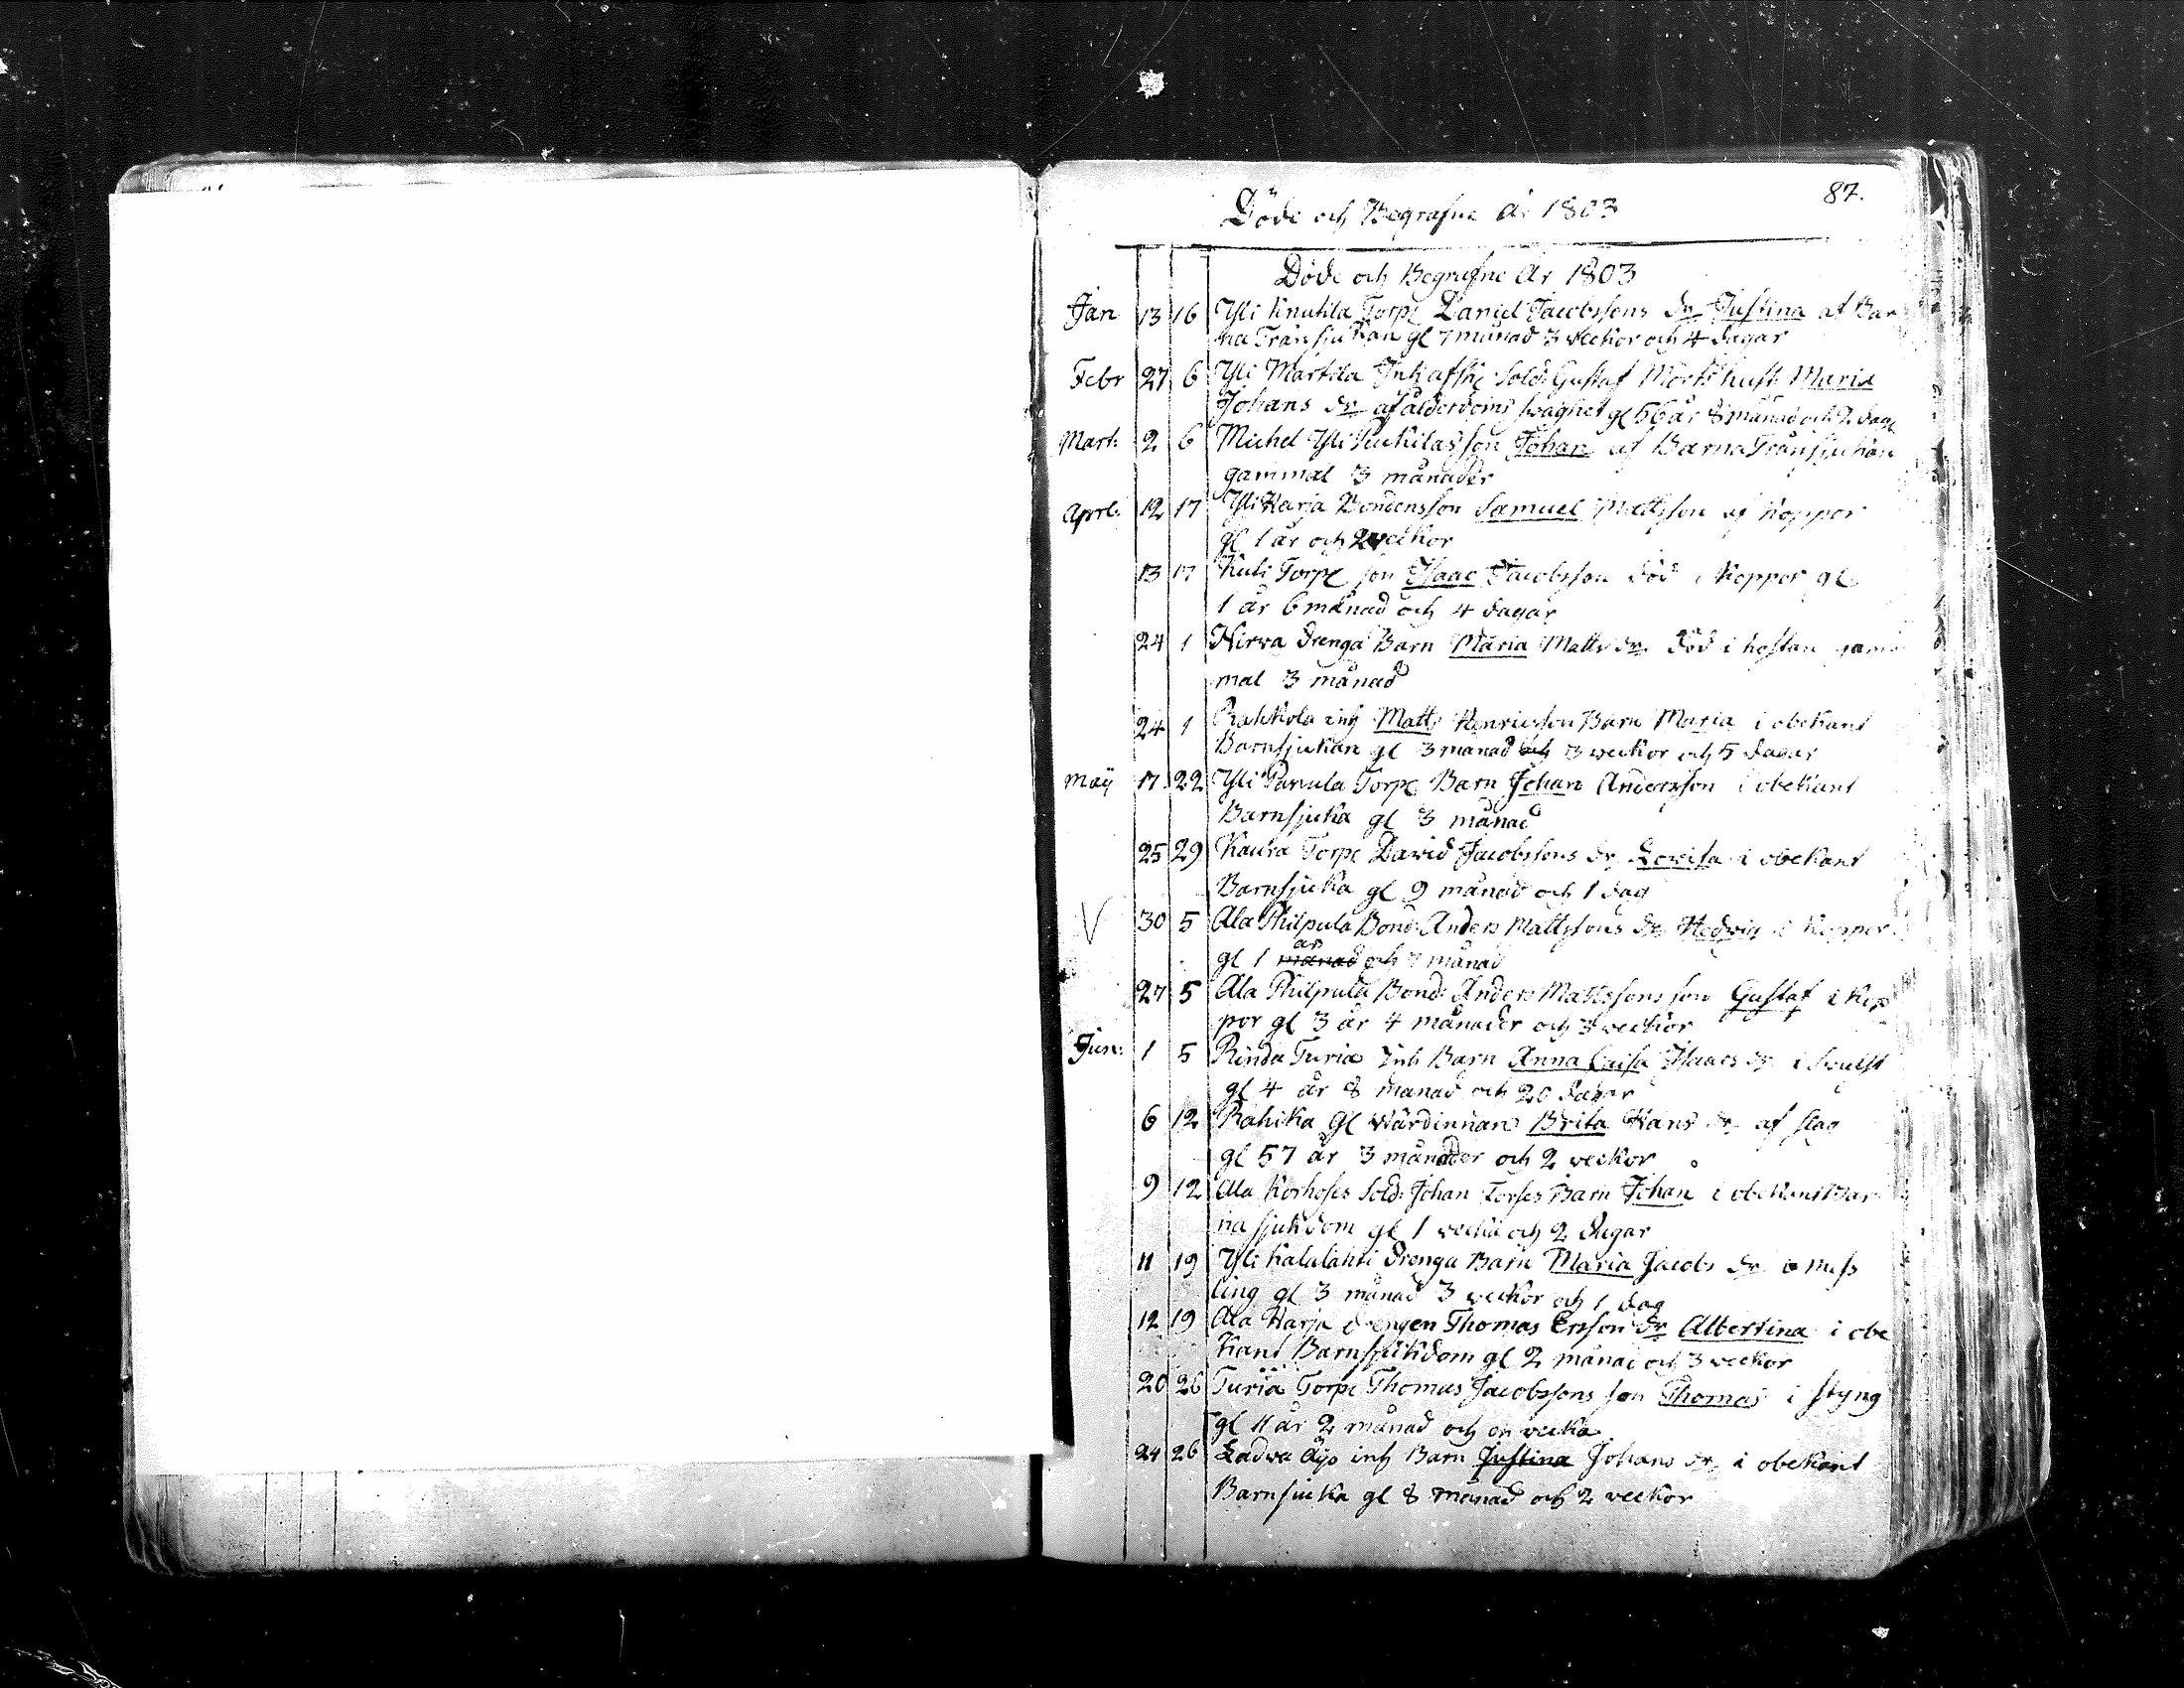 87.
Döde och Begrafne År 1803
Döde och Begrafne År 1803
Jan 13 16 Yli Knuhtla Torp: Daniel Jacobssons dr Justina af Bar
na Trånsjukan gl 7 månad 3 veckor och 4 dagar
Febr 27 6 Yli Marttila Sold: Gustaf Mörts hust: Maria
Johans dr af ålderdoms svaghet gl 56 år 8 månad och 2 dag:
Mart: 2 6 Michel Yli son Johan af Barna Trånsjukan
gammal 3 månader
Aprl: 12 17 Yli Harja Bondens son Samuel Mattsson af Koppor
gl 1 år och 2 veckor
13 17 Torp: son Isaac Jacobsson död i Koppor gl
1 år 6 månad och 4 dagar
24 1 Hirva drenga Barn Maria Matts dr död i hostan gam
mal 3 månad
24 1 Rahkola inh Matts Henricsson Barn Maria i obekant
Barnsjukan gl 3 månad och 3 veckor och 5 dagar
Maÿ 17 22 Yli Torp: Barn Johan Andersson i obekant
Barnsjuka gl 3 månad
25 29 Kaura Torp: David Jacobssons dr Lovisa i obekant
Barnsjuka gl 9 månad och 1 dag
V 30 5 Ala Philpula Bond: Anders Mattssons dr Hedvig i Koppor
år
gl 1 månad och 7 månad
27 5 Ala Philpula Bond: Anders Mattssons son Gustaf i Kop
por gl 3 år 4 månader och 3 veckor
Jun: 1 5 Rinda Turia Inh Barn Anna Caisa Isaacs dr i
gl 4 år 8 månad och 20 dagar
6 12 Rahika gl värdinnan Brita Hans dr af slag
gl 57 år 3 månader och 2 veckor
9 12 Ala Korhoses Sold: Johan Forses Barn Johan i obekant Bar
na sjukdom gl 1 vecka och 2 dagar
11 19 Yli Kalalahti drenga Barn Maria Jacobs dr i mess
ling gl 3 månad 3 veckor och 1 dag
12 19 Ala Harja drengen Thomas Ersson dr Albertina i obe
kant Barnsjukdom gl 2 månad och 3 veckor
20 26 Turia Torp: Thomas Jacobssons son Thomas i styng
gl 11 år 2 månad och en vecka
24 26 Ladva inh Barn Justina Johans dr i obekant
Barnsjuka gl 8 månad och 2 veckor